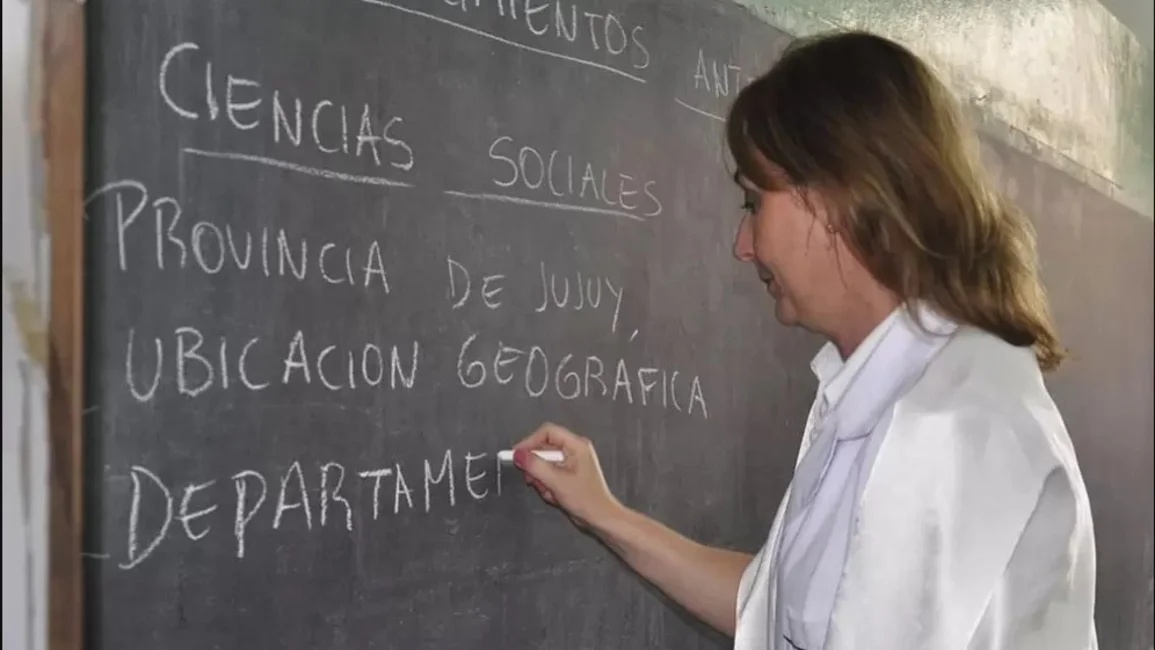 CIENCIAS SOCIALES
PROVINCIA DE JUJUY
UBICACION GEOGRÁFICA
DEPARTAME